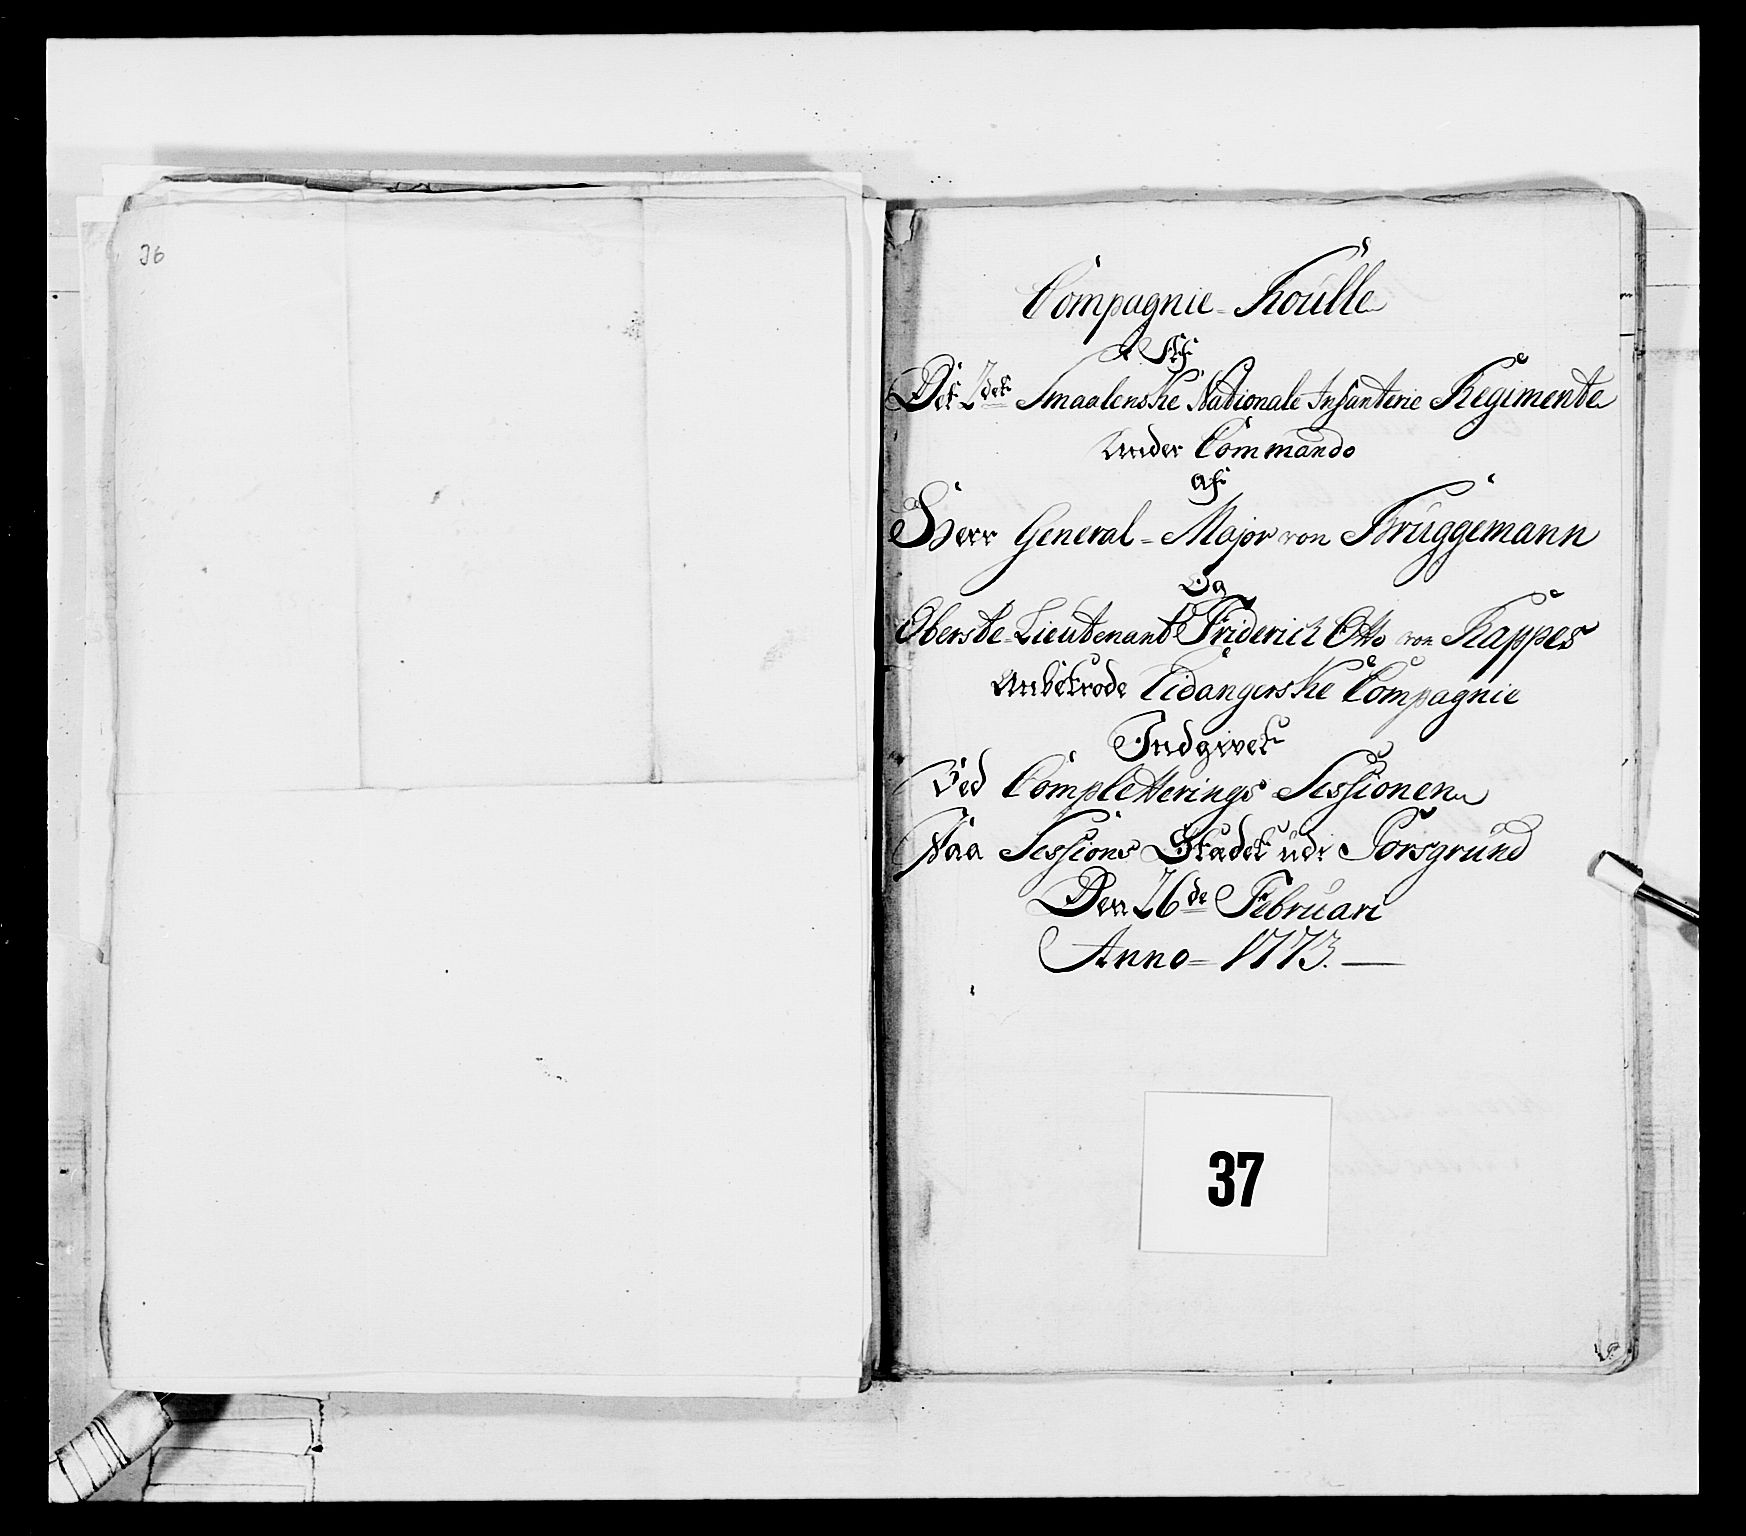 36
Compagnie-Roulle
Af
Det 2det Smaalenske Nationale Infanterie Regimente
Under Commando
af
Herr General-Major von Brüggemann
Og
Oberste-Lieutenant Friderich Otto von Kappes
Anbetrode Eidangerske Compagnie
Indgivet
Ved Completterings Sessionen
Paa Sessions Stædet udi Porsgrund
Den 26de Februari
Anno-1773.
37